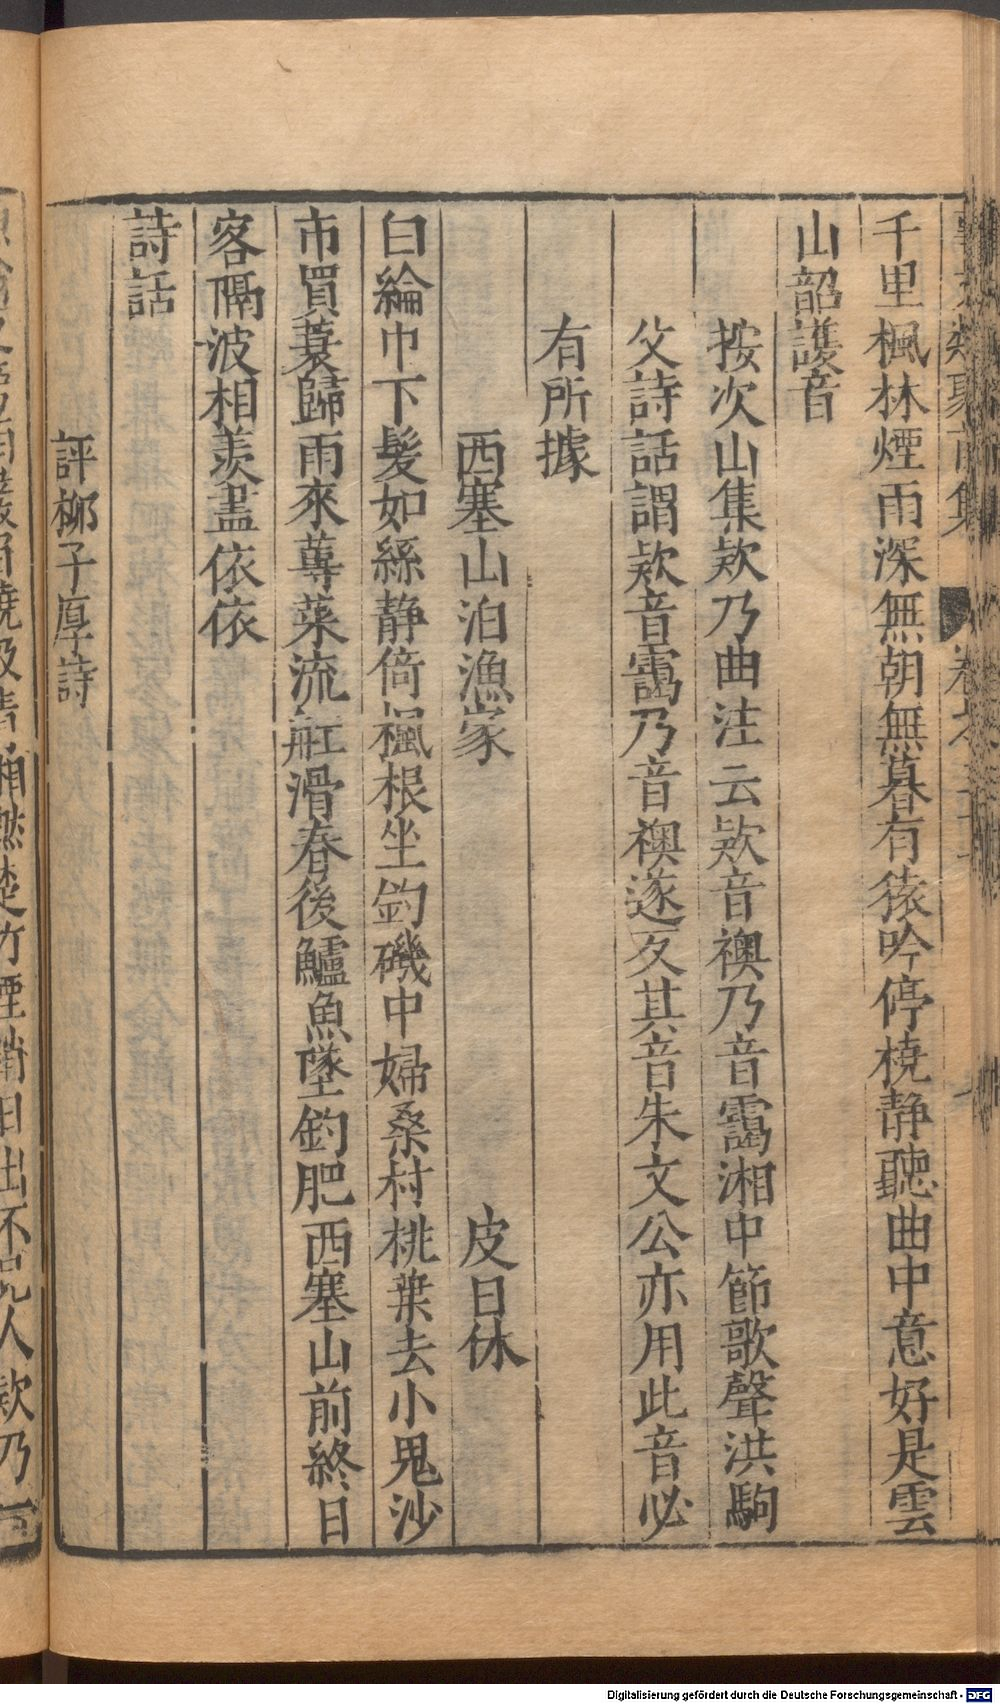 千里楓林煙雨深無朝無暮有猿吟停橈静聽曲中意好是雲
山韶頀音
按次山集欵乃曲注云欵音襖乃音靄湘中節歌聲洪駒
父詩話謂欵音靄乃音襖遂反其音朱文公亦用此音必
有所據
西塞山泊漁家　皮日休
白綸巾下髮如絲静倚楓根坐釣磯中婦桑村桃葉去小兒沙
市買蓑歸雨來蓴菜流舡滑春後鱸魚墜釣肥西塞山前終日
客隔波相羡盡依依
詩話
評栁子厚詩
Digitalisierung gefördert durch die Deutsche Forschungsgemeinschaft - DFG